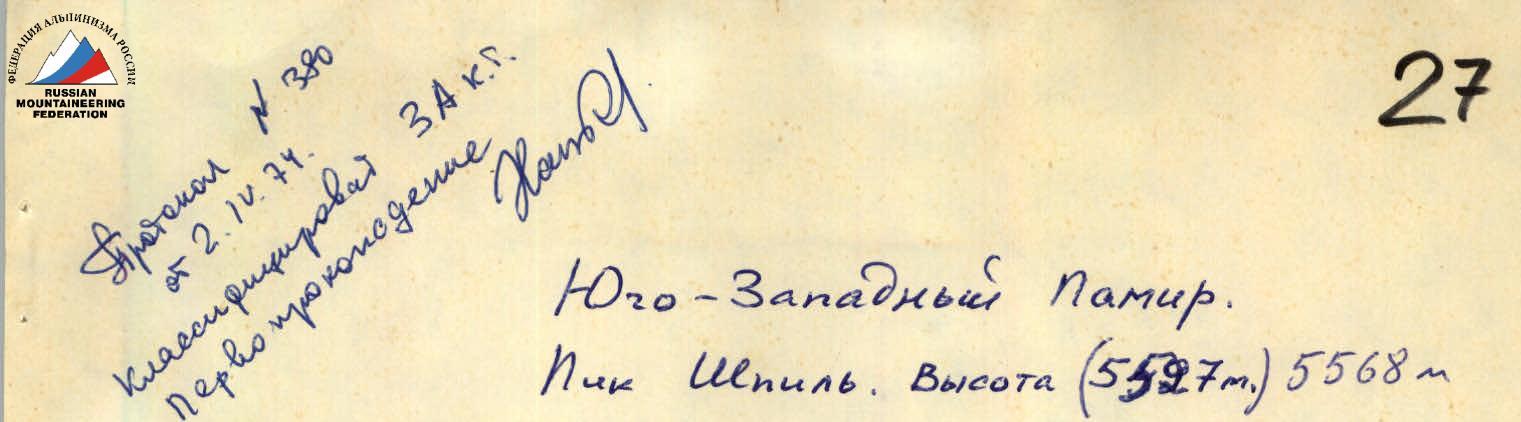 ФЕДЕРАЦИЯ АЛЬПИНИЗМА РОССИИ
RUSSIAN
MOUNTAINEERING
FEDERATION
27
Протокол N 380
от 2.IV.74.
Классифицироват 3А к.т.
Первопрохождение
Юго-Западный Памир.
Пик Шпиль. Высота (5597м.) 5568м